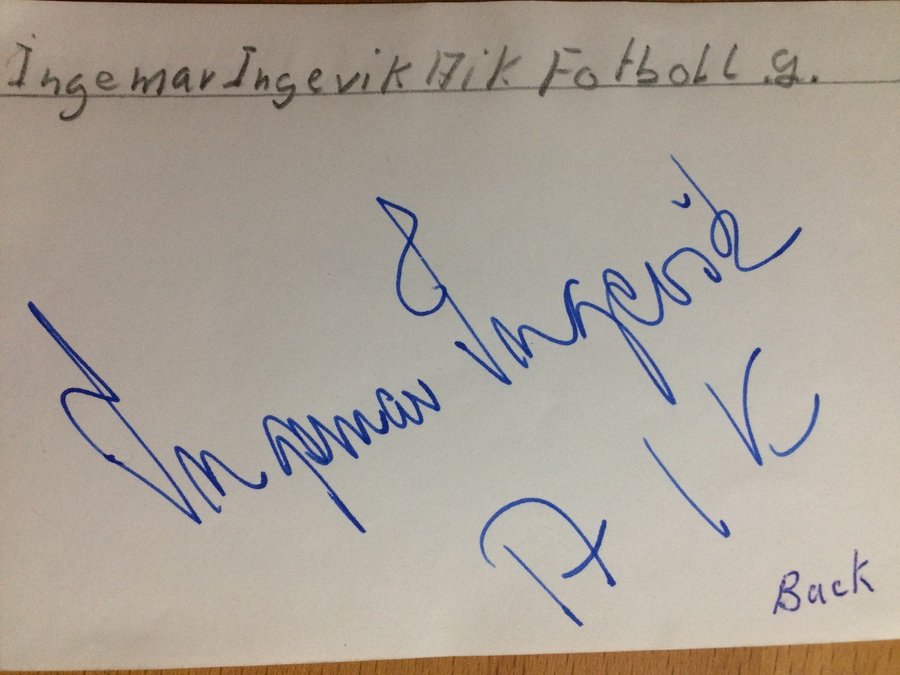 Ingemar Ingevik Aik Fotboll g.
Ingemar Ingevik
AIK
Back